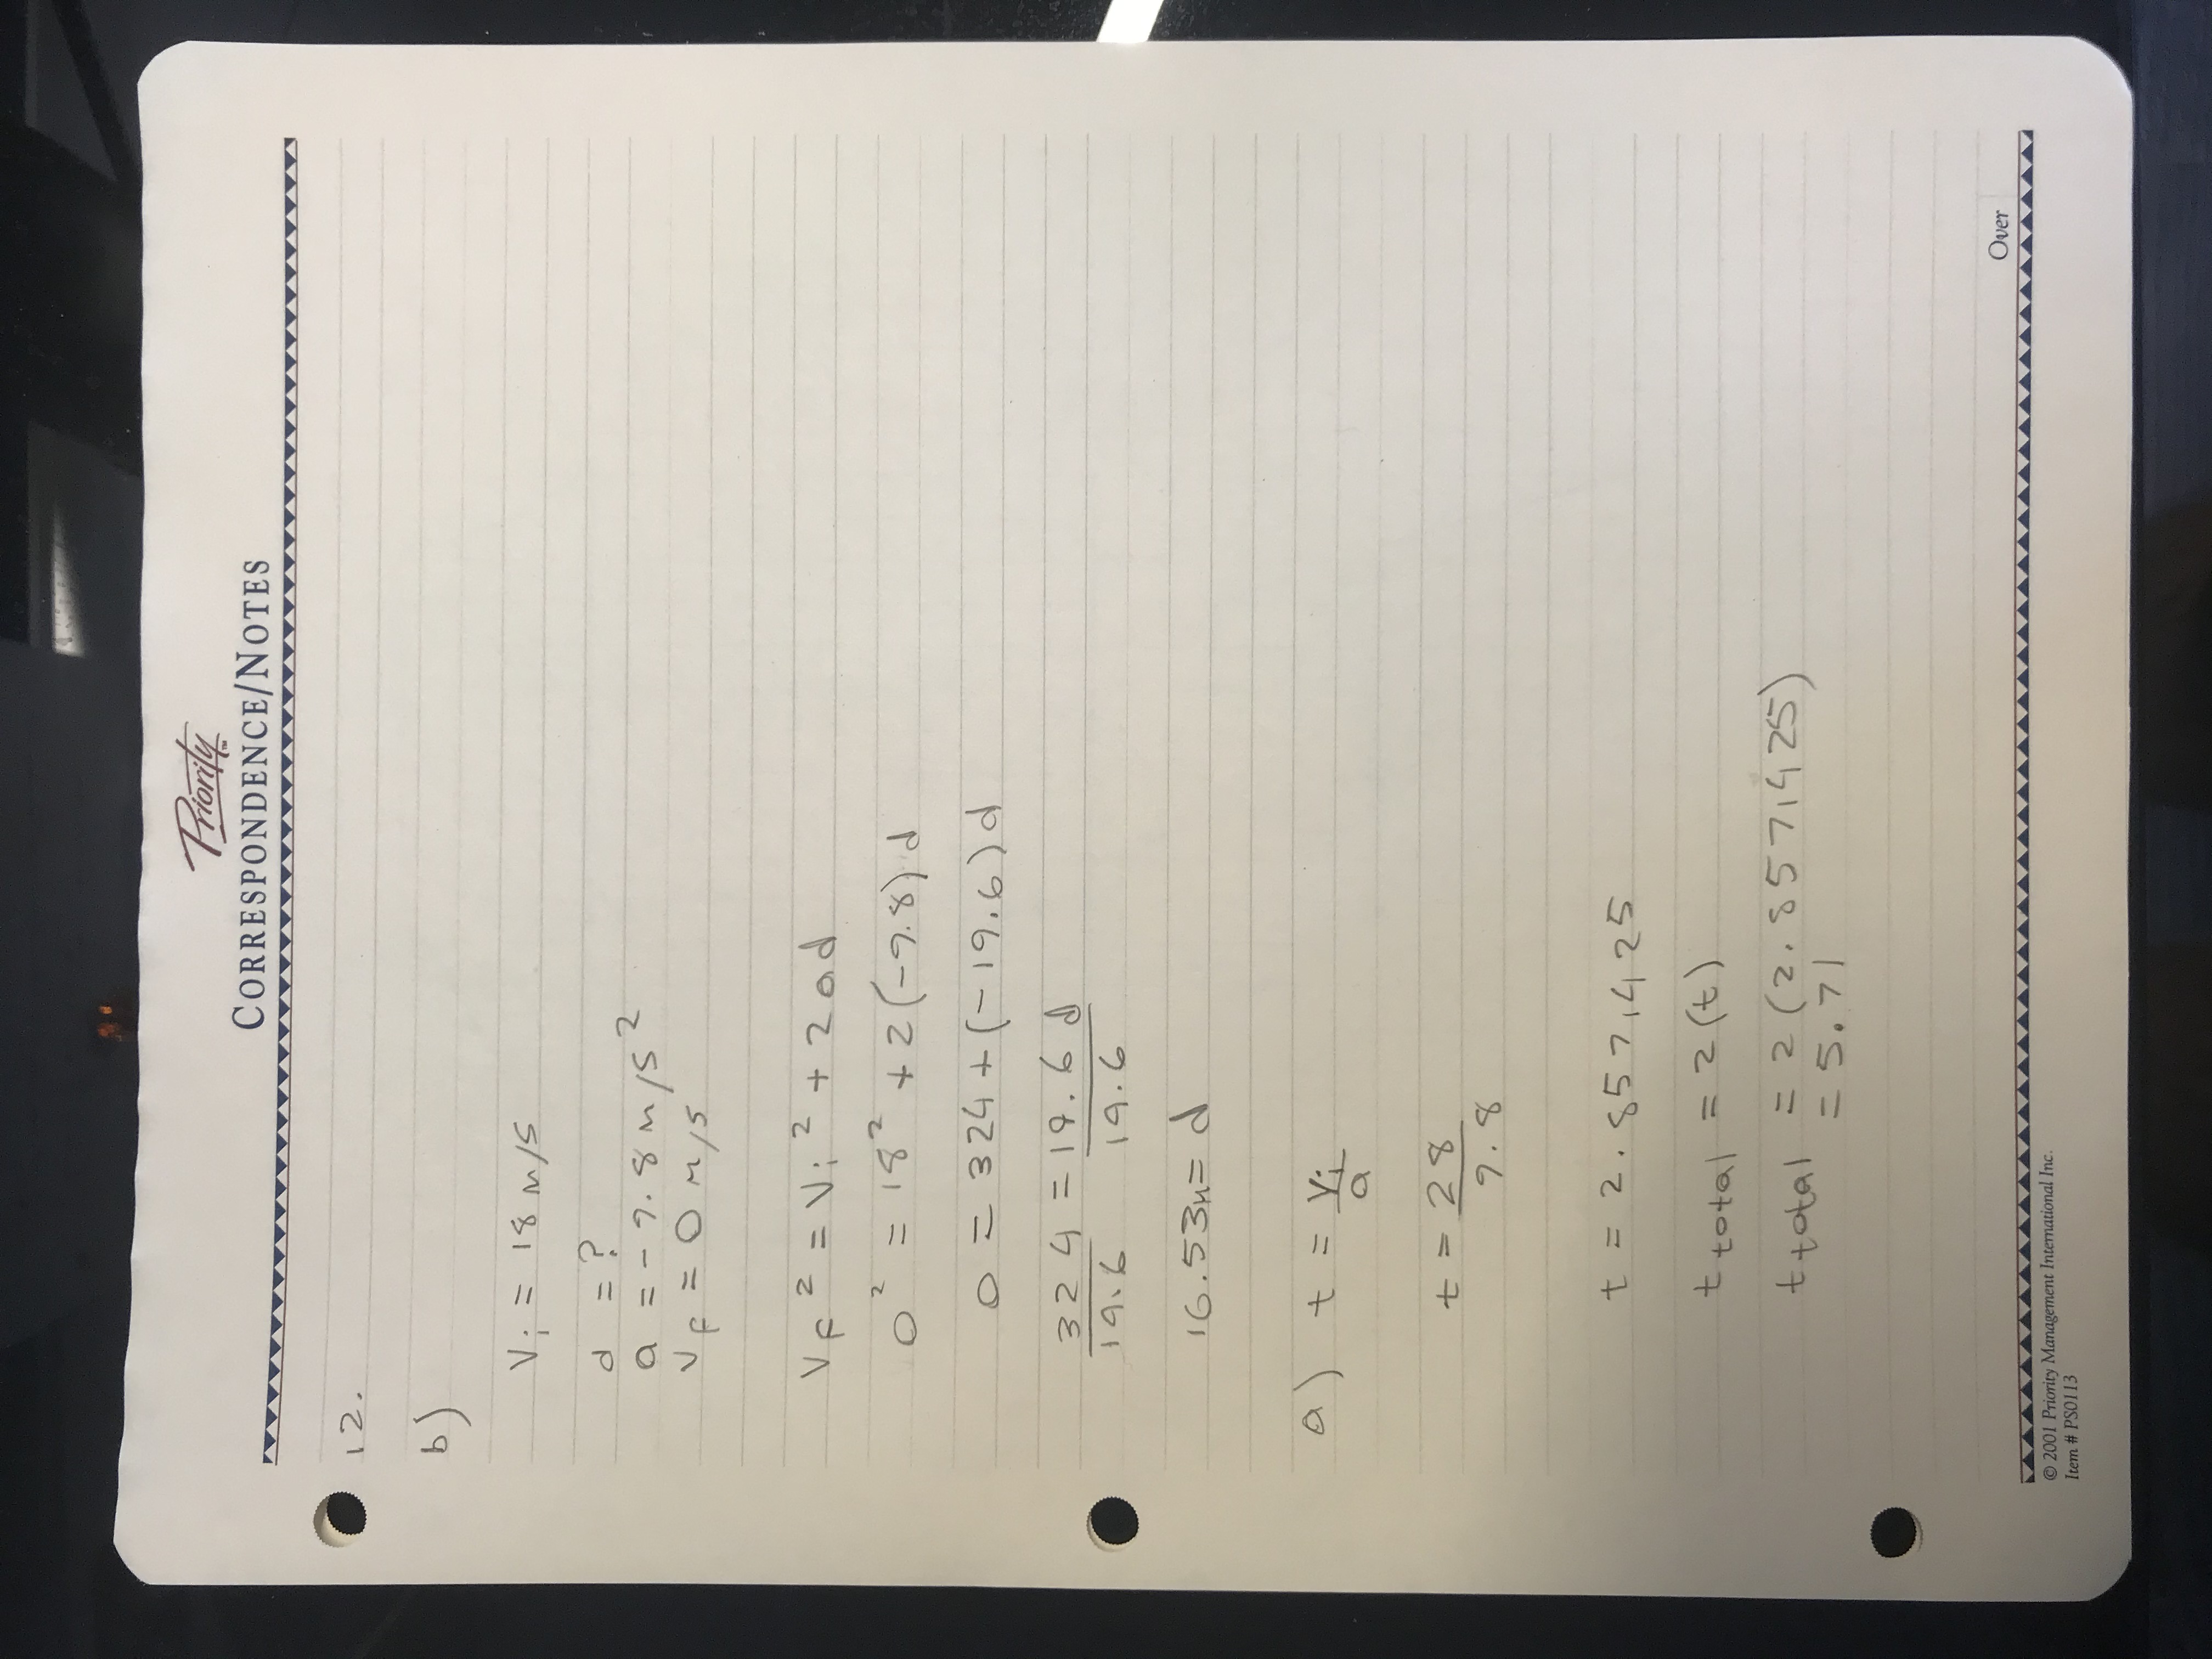 Priority™
CORRESPONDENCE/NOTES
12.
b)
Vi = 18 m/s
d = ?
a = - 9.8 m/s²
Vf = 0 m/s
Vf² = Vi² + 2ad
0² = 18² + 2(-9.8) d
0 = 324 + (-19.6) d
324 = 19.6 d
19.6 19.6
16.53m = d
a) t = Vi
a
t = 28
9.8
t = 2.8571425
t total = 2(t)
t total = 2 (2.8571425)
= 5.71
Over
© 2001 Priority Management International Inc.
Item # PS0113